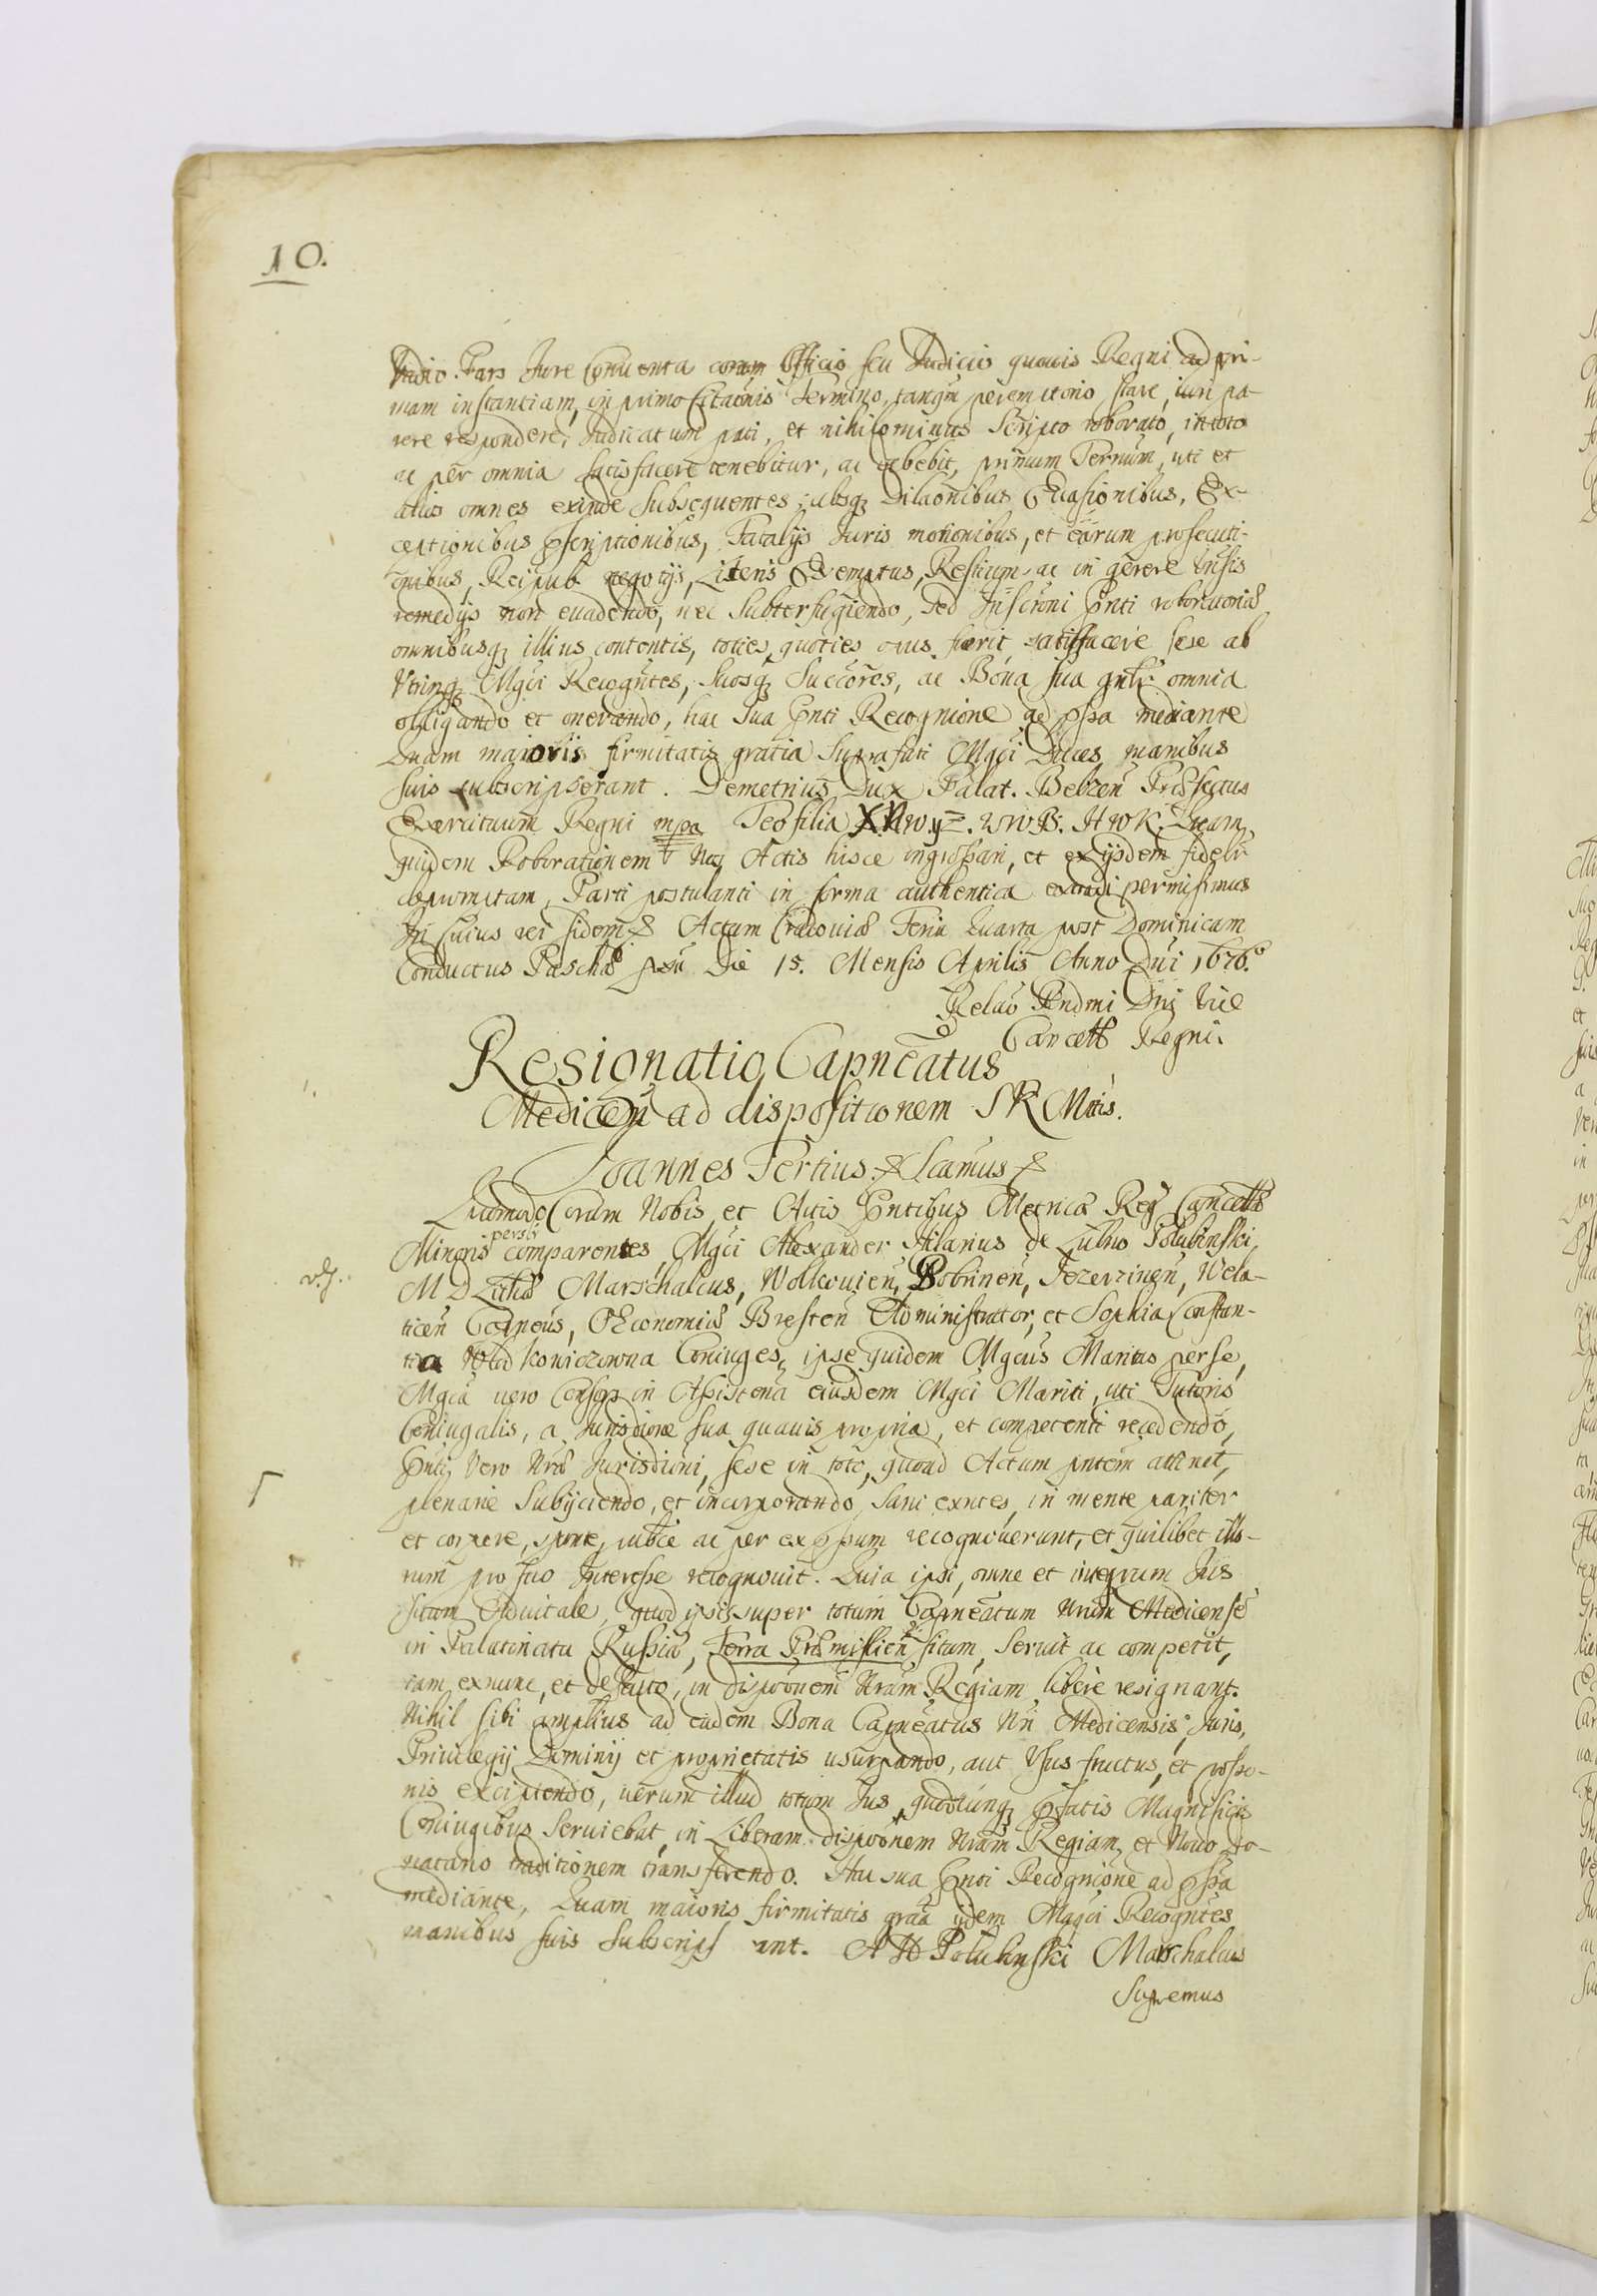 10.
Vadio. Pars Jure Conuenta coram Officio seu Judicio quouis Regni ad pri-
mam instantiam, in primo Citaonis Termino, tanqm peremtorio stare, iuri pa-
rere respondere, Judicatum pati, et nihilominus Scripto roborato, in toto
ac per omnia satisfacere tenebitur, ac debebit, primum Ternum, uti et
alios omnes exinde subsequentes, absqz Dilaonibus Euasionibus, Ex-
ceptionibus pscriptionibus, Fatalijs Juris motionibus, et earum prosecuti-
onibus, Reipub negotijs, Literis Exemptus, Restium, ac in genere
remedijs non euadendo, nec subterfugiendo, sed Inscroni Pnti roboratoriae
omnibusqz illius contentis, toties quoties opus fuerit satisfacere sese ab
Vtrinqz Mgci Recogntes, suosqz Succores, ac Bona sua gnlr omnia
obligando et onerando, hac sua Pnti Recognione ad pssa mediante
Quam maioris firmitatis gratia suprafati Mgci Duces manibus
suis subscripserant. Demetrius Dux Palat. Belzen Praefectus
Exercituum Regni mpa Teofilia X N W y Z. W W B. H W K. Quam
quidem Roborationem Nos Actis hisce ingrossari, et ex ijsdem fideli
depromptam, Parti postulanti in forma authentica extradi permisimus
In Cuius rei fidem & Actum Cracouiae Feria Quarta post Dominicam
Conductus Paschae pxa Die 15. Mensis Aprilis Anno Dni 1676.o
Relao Rndmi Dni Vice
Cancell Regni.
Resignatio Capneatus
Medicen ad dispositionem S R Mttis.
Joannes Tertius & Scamus &
Quomodo Coram Nobis, et Actis Pntibus Metricae Reg Cancell
Minoris persr comparentes, Mgci Alexander Hilarius de Lubno Polubinski
M D Lithae Marschalcus, Wolkouien, Bobrinen, Jezerzinen, Wela-
ticen Capneus, OEconomiae Bresten Administrator, et Sophia Constan-
tia Wolodkowiczowna Coniuges, ipse quidem Mgcus Maritus per se,
Mgca uero Consors in Assistena eiusdem Mgci Mariti, uti Tutoris
Coniugalis, a Jurisdione sua quauis propria, et competenti recedendo,
Pnti Vero Nrae Jurisdioni, sese in toto, quoad Actum pntem attinet,
plenarie Subijciendo, et incorporando, sani exntes, in mente pariter
et corpore, sponte, ac per expssum recognouerunt, et quilibet illo-
rum pro suo Interesse recognouit. Quia ipsi, omne et integrum Jus
suum Aduitale, quod ipsis super totum Capneatum Nrum Medicense
in Palatinatu Russiae, Terra Praemislien situm, seruit ac competit,
iam exnunc, et de facto, in disponem Nram Regiam libere resignant.
Nihil sibi amplius ad eadem Bona Capneatus Nri Medicensis, Juris,
Priuilegij Dominij et proprietatis usurpando, aut Vsus fructus, et posse-
nis excipiendo, uerum illud totum Jus, quodcunqz pfatis Magnificis
Coniugibus Seruiebat, in Liberam disponem Nram Regiam, et Nouo Do-
natario traditionem transferendo. Hac sua Pnti Recognione ad pssa
mediante, Quam maioris firmitatis graa ijdem Mgci Recogntes
manibus suis Subscripserant. A H Polubinski Marschalcus
Supremus